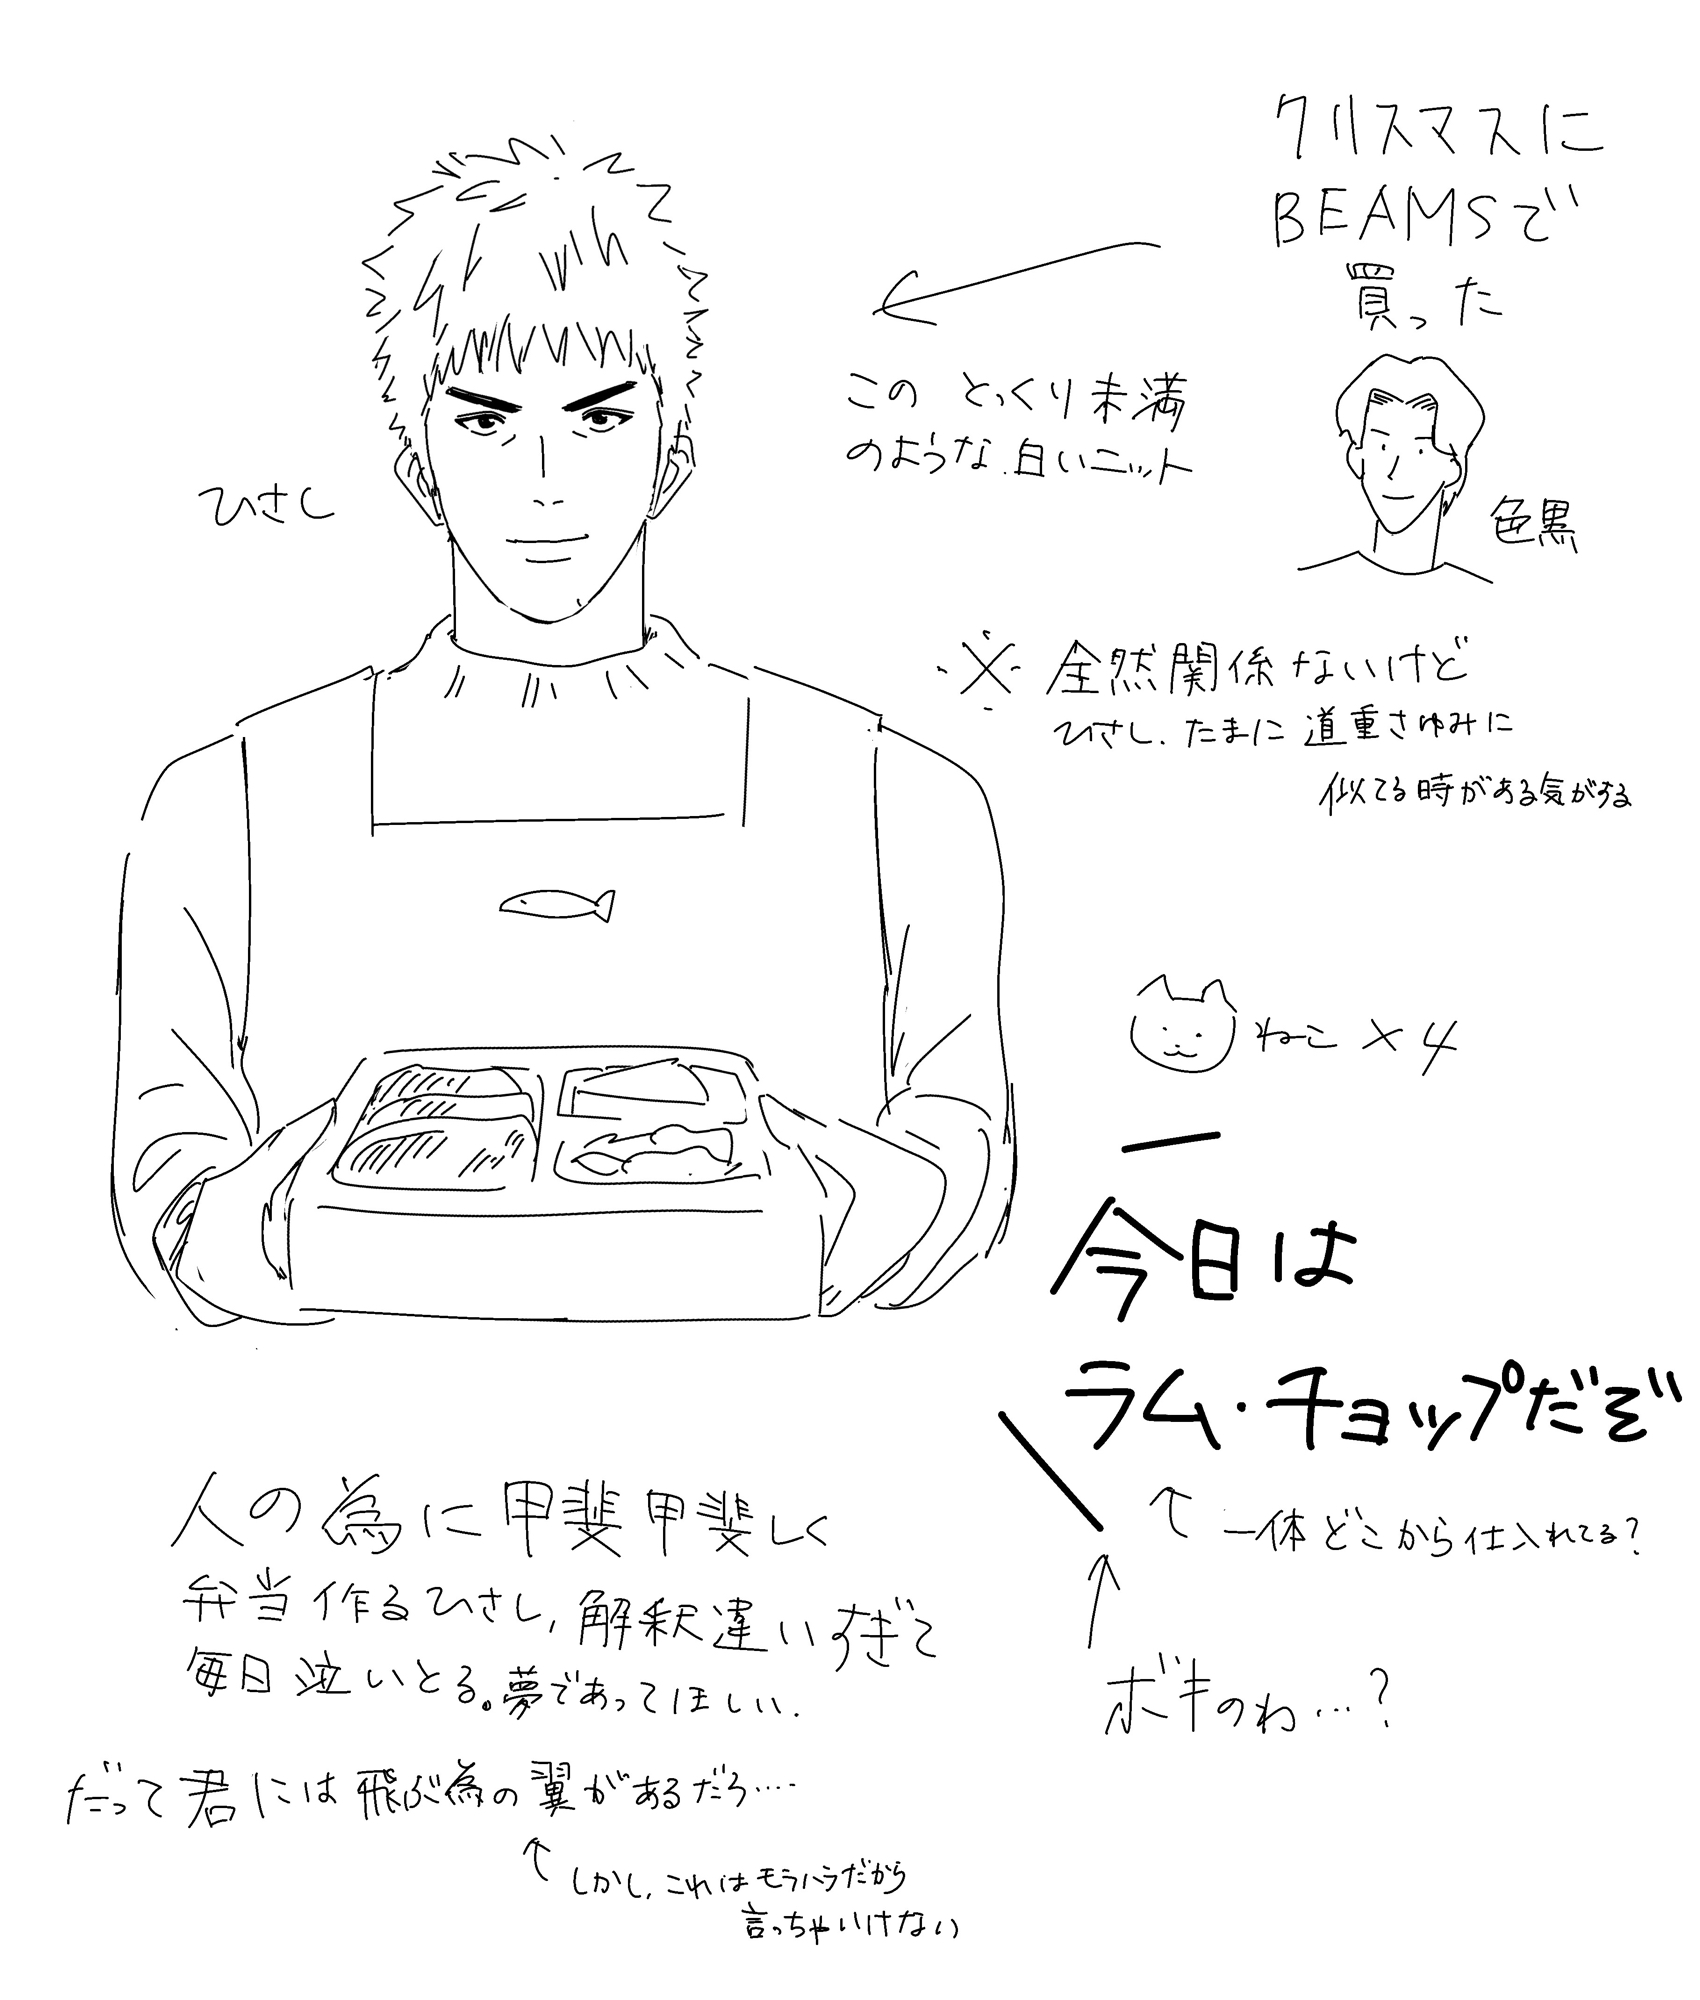 クリスマスに
BEAMSで
買った
この とっくり未満
のような白いニット
ひさし
色黒
※全然関係ないけど
ひさし、たまに道重さゆみに
似てる時がある気がする
ねこ×4
今日は
ラム・チョップだぞ
一体どこから仕入れてる?
ボキのわ…?
人の為に甲斐甲斐しく
弁当作るひさし、解釈違いすぎて
毎日泣いとる。夢であってほしい、
だって君には飛ぶ為の翼があるだろ……
しかし、これはモラハラだから
言っちゃいけない